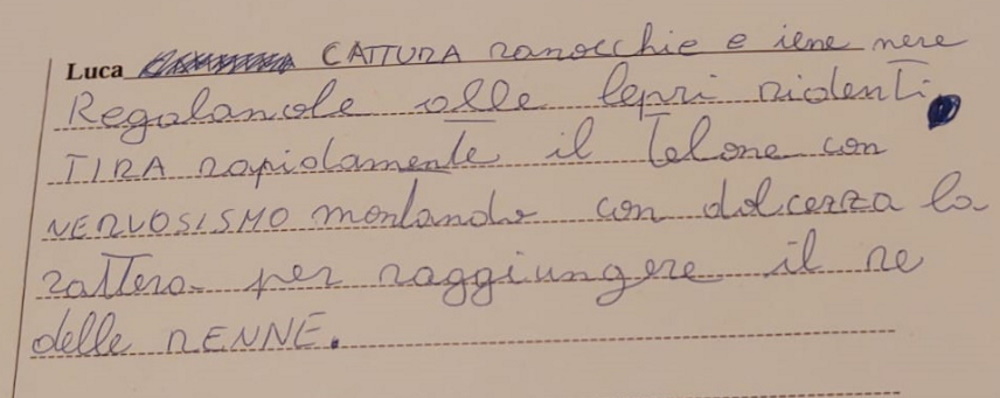 Luca CATTURA ranocchie e iene nere
Regalandole alle lepri ridenti.
TIRA rapidamente il telone con
NERVOSISMO montando con dolcezza la
zattera per raggiungere il re
delle RENNE.